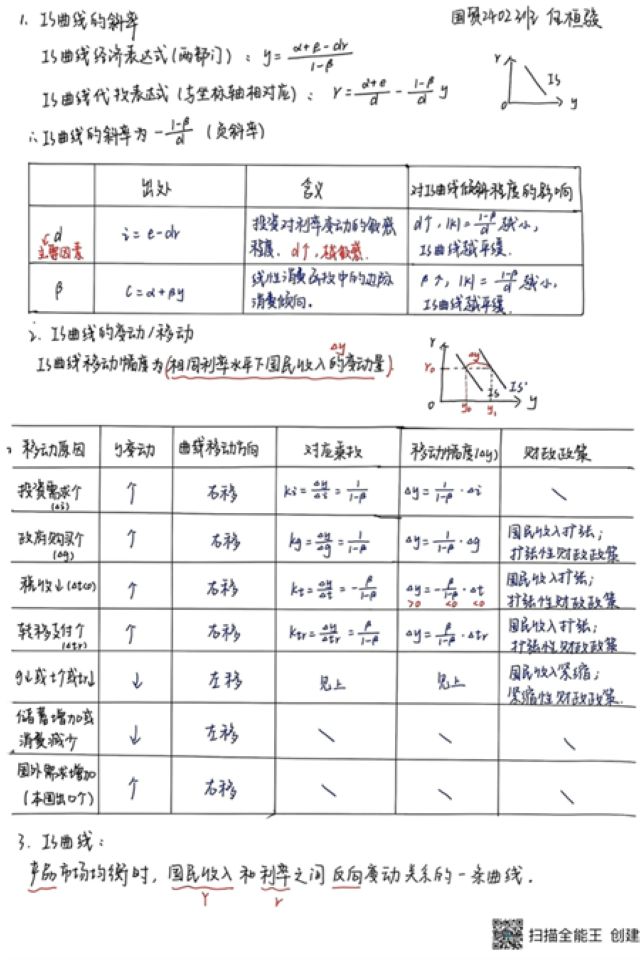 1. IS曲线的斜率
国贸2402班
IS曲线经济表达式(两部门): y=(α+e-dr)/(1-β)
IS曲线代数表达式(与坐标轴相对应): r=(α+e)/d - (1-β)/d y
r IS O y
∴IS曲线的斜率为 -(1-β)/d (负斜率)
出处 含义 对IS曲线倾斜程度的影响
d 主要因素 i=e-dr 投资对利率变动的敏感程度. d↑, 越敏感. d↑, |k|=(1-β)/d 越小, IS曲线越平缓.
β c=α+βy 线性消费函数中的边际消费倾向. β↑, |k|=(1-β)/d 越小, IS曲线越平缓.
2. IS曲线的变动/移动
IS曲线移动幅度为(相同利率水平下国民收入的变动量) Δy
r r₀ Δy IS IS' O y₀ y₁ y
移动原因 y变动 曲线移动方向 对应乘数 移动幅度(Δy) 财政政策
投资需求↑(Δi) ↑ 右移 ki=Δy/Δi=1/(1-β) Δy=1/(1-β)·Δi \
政府购买↑(Δg) ↑ 右移 kg=Δy/Δg=1/(1-β) Δy=1/(1-β)·Δg 国民收入扩张; 扩张性财政政策
税收↓(Δt<0) ↑ 右移 kt=Δy/Δt=-β/(1-β) Δy=-β/(1-β)·Δt >0 <0 <0 国民收入扩张; 扩张性财政政策
转移支付↑(Δtr) ↑ 右移 ktr=Δy/Δtr=β/(1-β) Δy=β/(1-β)·Δtr 国民收入扩张; 扩张性财政政策
g↓或t↑或tr↓ ↓ 左移 见上 见上 国民收入紧缩; 紧缩性财政政策.
储蓄增加或消费减少 ↓ 左移 \ \ \
国外需求增加(本国出口↑) ↑ 右移 \ \ \
3. IS曲线:
产品市场均衡时, 国民收入和利率之间反向变动关系的一条曲线.
Y r
扫描全能王 创建